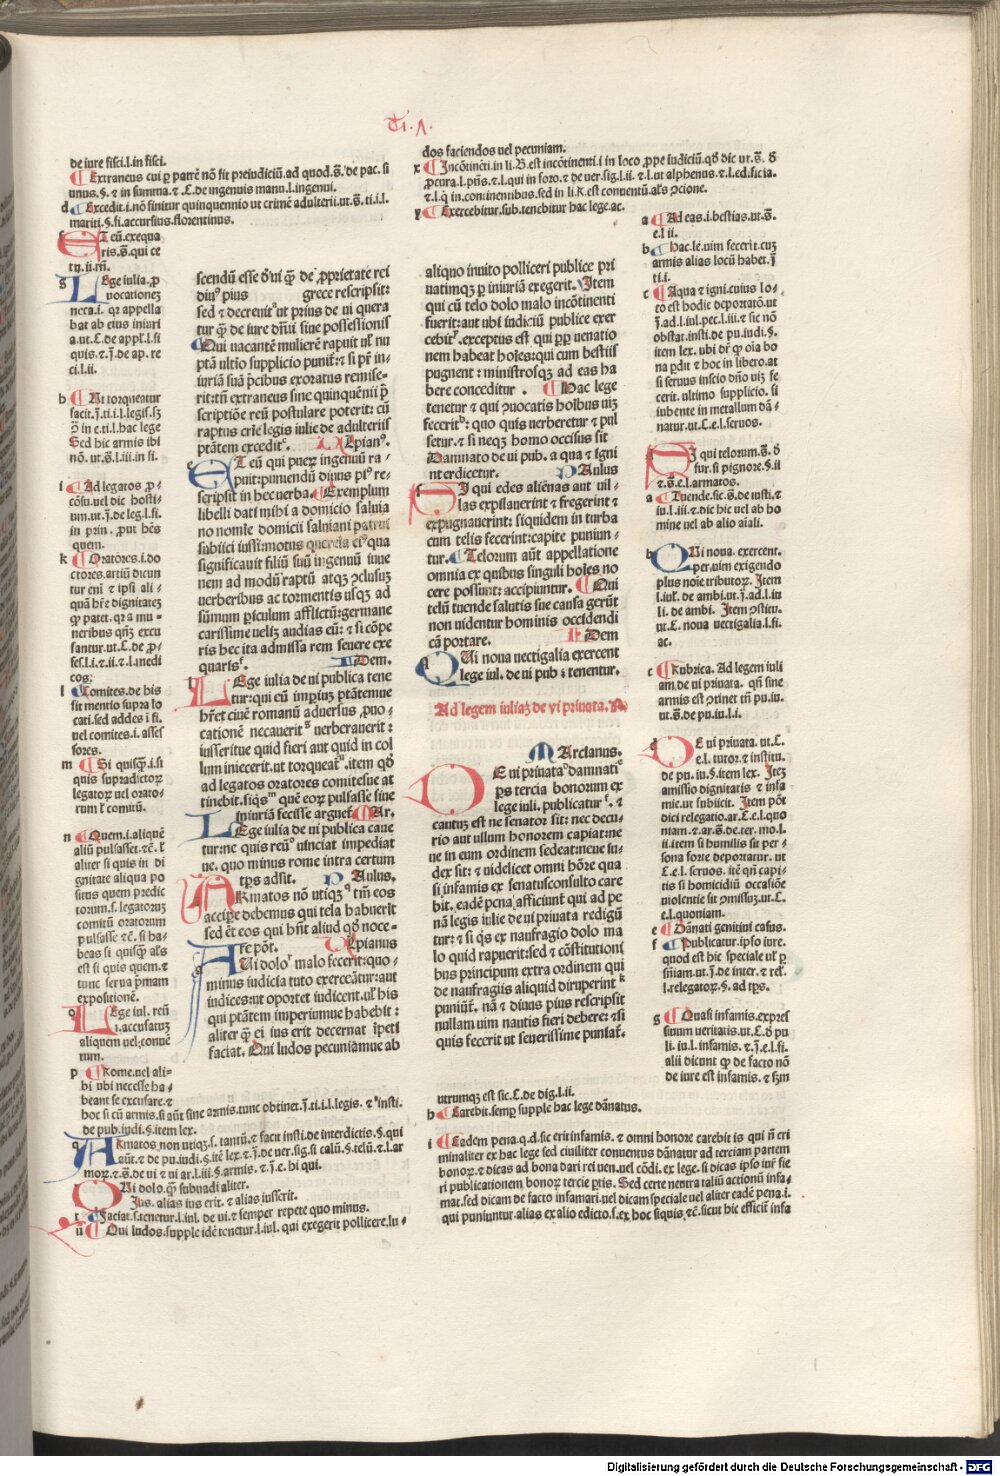 Ti. V.
de iure fisci.l.in fisci.
¶ Extraneus cui ꝑ patrē nō fit preiudiciū.ad quod.s̄.de pac. si
unus.§. ⁊ in summa. ⁊ .C.de ingenuis manu.l.ingenui.
d ¶ Excedit.i.nō finitur quinquennio ut crimē adulterii.ut.s̄.ti.i.l.
mariti.§.fi.accursius.florentinus.
f ET cū.exequa
ris.s̄.qui ce
g LEge iulia.p
uocationez
necta.i. qꝛ appella
bat ab eius iniuri
a.ut.C.de appl'.l.si
quis.⁊.j̄.de ap. re
ci.l.ii.
h ¶ Ut torqueatur
facit.j̄.ti.i.l.legis.sz
Sed hic armis ibi
nō. ut.s̄.l.iii.in fi.
i ¶ Ad legatos ꝓ-
cōsu.uel dic hosti-
um.ut.j̄.de leg.l.fi.
in prin. ꝓut hēs
quem.
k ¶ Oratores.i.do
ctores.artiū dicun
tur eni ⁊ ipsi ali-
quā hr̄e dignitatez
neribus qn̄z excu
santur.ut.C.de ꝓ-
fes.l.i.⁊.ii.⁊.l.medi
cos.
l ¶ Comites.de his
fit mentio supra lo
cati.sed addes i fi.
uel comites.i. asses
sores.
m ¶ Si quisq̄.i.si
quis supradictoꝝ
legatoꝝ uel orato-
rum ł comitū.
n ¶ Quem.i.aliquē
aliū pulsasset.⁊c̄. ł
aliter si quis in di
gnitate aliqua po
situs quem predic
torum.s.legatorum
comitū oratorum
pulsasse ⁊c̄. si ha-
beas si quisq̄ als
est si quis quem.⁊
tunc serua p̄mam
expositionē.
o LEge iul. reū
.i.accusatuz
aliquem uel.conuē
tum.
p ¶ Rome.uel ali-
bi ubi necesse ha-
beant se excusare.⁊
hoc si cū armis.si aūt sine armis.tunc obtinet.j̄.ti.i.l.legis. ⁊ insti.
de pub.iudi.§.item lex.
q ARmatos non utiqz.s. tantū.⁊ facit insti.de interdictis.§.qui
aūt.⁊ de pu.iudi.§.itē lex.⁊.j̄.de uer.sig.si calū.§.telū.⁊.l.ar
moꝝ.⁊.s̄.de ui ⁊ ui ar.l.iii.§.armis. ⁊.j̄.e. hi qui.
QUi dolo.q̄ subaudi aliter.
Jus. alias ius erit. ⁊ alias iusserit.
t ¶ Faciat.s.tenetur.l.iul.de ui.⁊ semper repete quo minus.
u ¶ Qui ludos.supple idē tenetur.l.iul. qui exegerit pollicere.lu-
scendū esse d'ui q̄ de ꝓprietate rei
diuꝰ pius grece rescripsit:
sed ⁊ decreuitᵃ ut prius de ui quera
tur q̄ de iure dn̄ii siue possessionis
¶ Qui uacantē mulierē rapuit uł nu
ptā ultio supplicio punit̄:⁊ si pr̄ in-
iuriā suā p̄cibus exoratus remise-
rit:tn̄ extraneus sine quinquēnii p̄
scriptiōe reū postulare poterit: cū
raptus crīe legis iulie de adulteriis
ptātem exceditᶜ. Ulpianꝰ.
ET eū qui pueꝝ ingenuū ra-
puit:puniendū diuus piꝰ re-
scripsit in hec uerba.¶ Exemplum
libelli dati mihi a domicio saluia
no nomīe domicii saluiani patrui
subiici iussi:motus querela eiꝰ qua
significauit filiū suū ingenuū iuue
nem ad modū raptū atqz ꝯclusuz
uerberibus ac tormentis usqz ad
sūmum ꝑiculum afflictū:germane
carissime ueliz audias eū: ⁊ si cōpe
ris hec ita admissa rem seuere exe
quarisᶠ. Idem.
LEge iulia de ui publica tene
tur:qui cū impiuz ptātemue
hr̄et ciuē romanū aduersus ꝓuo-
cationē necauerit uerberauerit:
iusseritue quid fieri aut quid in col
lum iniecerit.ut torqueat̄.item qd̄
ad legatos oratores comitesue at
tinebit.siqsᵐ quē eoꝝ pulsasse siue
iniuriā fecisse arguet̄.¶ Mar.
LEge iulia de ui publica caue
tur:ne quis reūᵒ uinciat impediat
ue. quo minus rome intra certum
tp̄s adsit. Paulus.
ARmatos nō utiqz q tm̄ eos
accipe debemus qui tela habuerit
sed ēt eos qui hn̄t aliud qd̄ noce-
re pōt. Ulpianus
QUi doloʳ malo fecerit:quo-
minus iudicia tuto exerceātur:aut
iudices:ut oportet iudicent.uł his
qui ptātem imperiumue habebit:
aliter q̄ ei ius erit decernat ipeti
faciat. Qui ludos pecuniāmue ab
dos faciendos uel pecuniam.
x ¶ Incōtinēti.in li.B.est incōtinenti.i in loco ꝓpe iudiciū.qd̄ dic ut.s̄. d̄
ꝓcura.l.pn̄s.⁊.l.qui in foro.⁊ de uer.sig.l.ii. ⁊.l.ut alphenus.⁊.l.ed.ficia.
⁊.l.q̄ in.continentibus.sed in li.R.est conuentū.als ꝯcione.
y ¶ Exercebitur.sub.tenebitur hac lege.ac.
aliquo inuito polliceri publice pri
uatimqz ꝑ iniuriā exegerit. ¶ Item
qui cū telo dolo malo incōtinenti
fuerit:aut ubi iudiciū publice exer
cebitʸ.exceptus est qui ꝓp uenatio
nem habeat hoīes:qui cum bestiis
pugnent: ministrosqz ad eas ha
bere conceditur . ¶ Hac lege
tenetur ⁊ qui ꝯuocatis hoībus uiz
feceritᵇ: quo quis uerberetur ⁊ pul
setur.⁊ si neqz homo occisus sit
Damnato de ui pub. a qua ⁊ igni
nterdicetur. Paulus
HI qui edes alienas aut uil-
las expilauerint ⁊ fregerint ⁊
expugnauerint: siquidem in turba
cum telis fecerint:capite puniun-
tur. ¶ Telorum aūt appellatione
omnia ex quibus singuli hoīes no
cere possunt: accipiuntur. ¶ Qui
telū tuende salutis sue causa gerūt
non uidentur hominis occidendi
cā portare. Idem
QUi noua uectigalia exercent
lege iul. de ui pub: tenentur.
Ad legem iuliaz de vi priuata. R.
Marcianus.
DE ui priuata damnati
ps tercia bonorum ex
lege iuli. publicaturᶠ. ⁊
cautuz est ne senator sit: nec decu-
rio aut ullum honorem capiat:ne
ue in eum ordinem sedeat:neue iu-
dex sit: ⁊ uidelicet omni hōre qua
si infamis ex senatusconsulto care
bit. eadē pena afficiunt̄ qui ad pe
nā legis iulie de ui priuata redigū
tur: ⁊ si qs ex naufragio dolo ma
lo quid rapuerit:sed ⁊ cōstitutioni
bus principum extra ordinem qui
de naufragiis aliquid diruperintᵏ
puniūt̄. nā ⁊ diuus pius rescripsit
nullam uim nautis fieri debere: ⁊si
quis fecerit ut seuerissime puniat̄.
utrumqz est sic.C.de dig.l.ii.
h ¶ Carebit.semꝑ supple hac lege dānatus.
i ¶ Eadem pena.q.d.sic erit infamis. ⁊ omni honore carebit is qui n̄ cri
minaliter ex hac lege sed ciuiliter conuentus dānatur ad terciam partem
bonoꝝ.⁊ dicas ad bona dari rei uen.uel cōdi. ex lege. si dicas ipso iur̄ fie
ri publicationem bonoꝝ tercie ptis. Sed certe neutra taliū actionū infa-
mat.sed dicam de facto infamari.uel dicam speciale uel aliter eadē pena.i.
qui puniuntur.alias ex alio edicto.s.ex hoc siquis.⁊c̄.sicut hic efficiūt̄ infa
a ¶ Ad eas.i.bestias.ut.s̄.
e.l ii.
b ¶ Hac.le.uim fecerit.cuz
armis alias locū habet.j̄
ti.i.
c ¶ Aqua ⁊ igni.cuius lo-
co est hodie deportatō.ut
j̄.ad.l.iul.pec.l.iii.⁊ sic nō
obstat.insti.de pu.iudi.§.
item lex. ubi dr̄ q̄ oīa bo
na ꝑdit ⁊ hoc in libero.at
si seruus inscio dn̄o uiz fe
cerit. ultimo supplicio. si
iubente in metallum dā-
natur.ut.C.e.l.seruos.
HI qui telorum.s̄. d̄
fur.si pignore.§.ii
⁊.s̄.e.l.armatos.
a ¶ Tuende.sic.s̄.de iusti.⁊
iu.l.iii.⁊ dic hic uel ab ho
mine uel ab alio aīali.
b QUi noua. exercent.
per.uim exigendo
plus noīe tributoꝝ. Item
l.iul. de ambi.ut.j̄.ad.l.iu
li. de ambi. Item ꝯstitu.
ut.C. noua uectigalia.l.fi.
ac.
c ¶ Rubrica. Ad legem iuli
am de ui priuata. qn̄ sine
armis est ꝯtinet m̄ pu.iu.
ut.s̄.de pu.iu.l.i.
d DE ui priuata. ut.C.
e.l. tutor.⁊ institu.
de pu. iu.§.item lex. Itez
amissio dignitatis ⁊ infa
mie.ut subiicit. Item pōt
dici relegatio.ar.C.e.l.quo
niam.⁊ ar.s̄.de.ter. mo.l.
ii.item si humilis sit per-
sona forte deportatur. ut
C.e.l. seruos. itē qn̄ capi-
tis si homicidiū occasiōe
uiolentie sit ꝯmissuz.ut.C.
e.l.quoniam.
e ¶ Dānati genitiui casus.
f ¶ Publicatur.ipso iure.
quod est hic speciale uł ꝑ
sn̄iam.ut.j̄.de inter. ⁊ reł.
l.relegatoꝝ.§. ad tp̄s.
g ¶ Quasi infamis.expres
siuum ueritatis.ut.C.d̄ pu
li. iu.l. infamis. ⁊.j̄.e.l.fi.
alii dicunt q̄ de facto nō
de iure est infamis. ⁊ sm̄
Digitalisierung gefördert durch die Deutsche Forschungsgemeinschaft - DFG